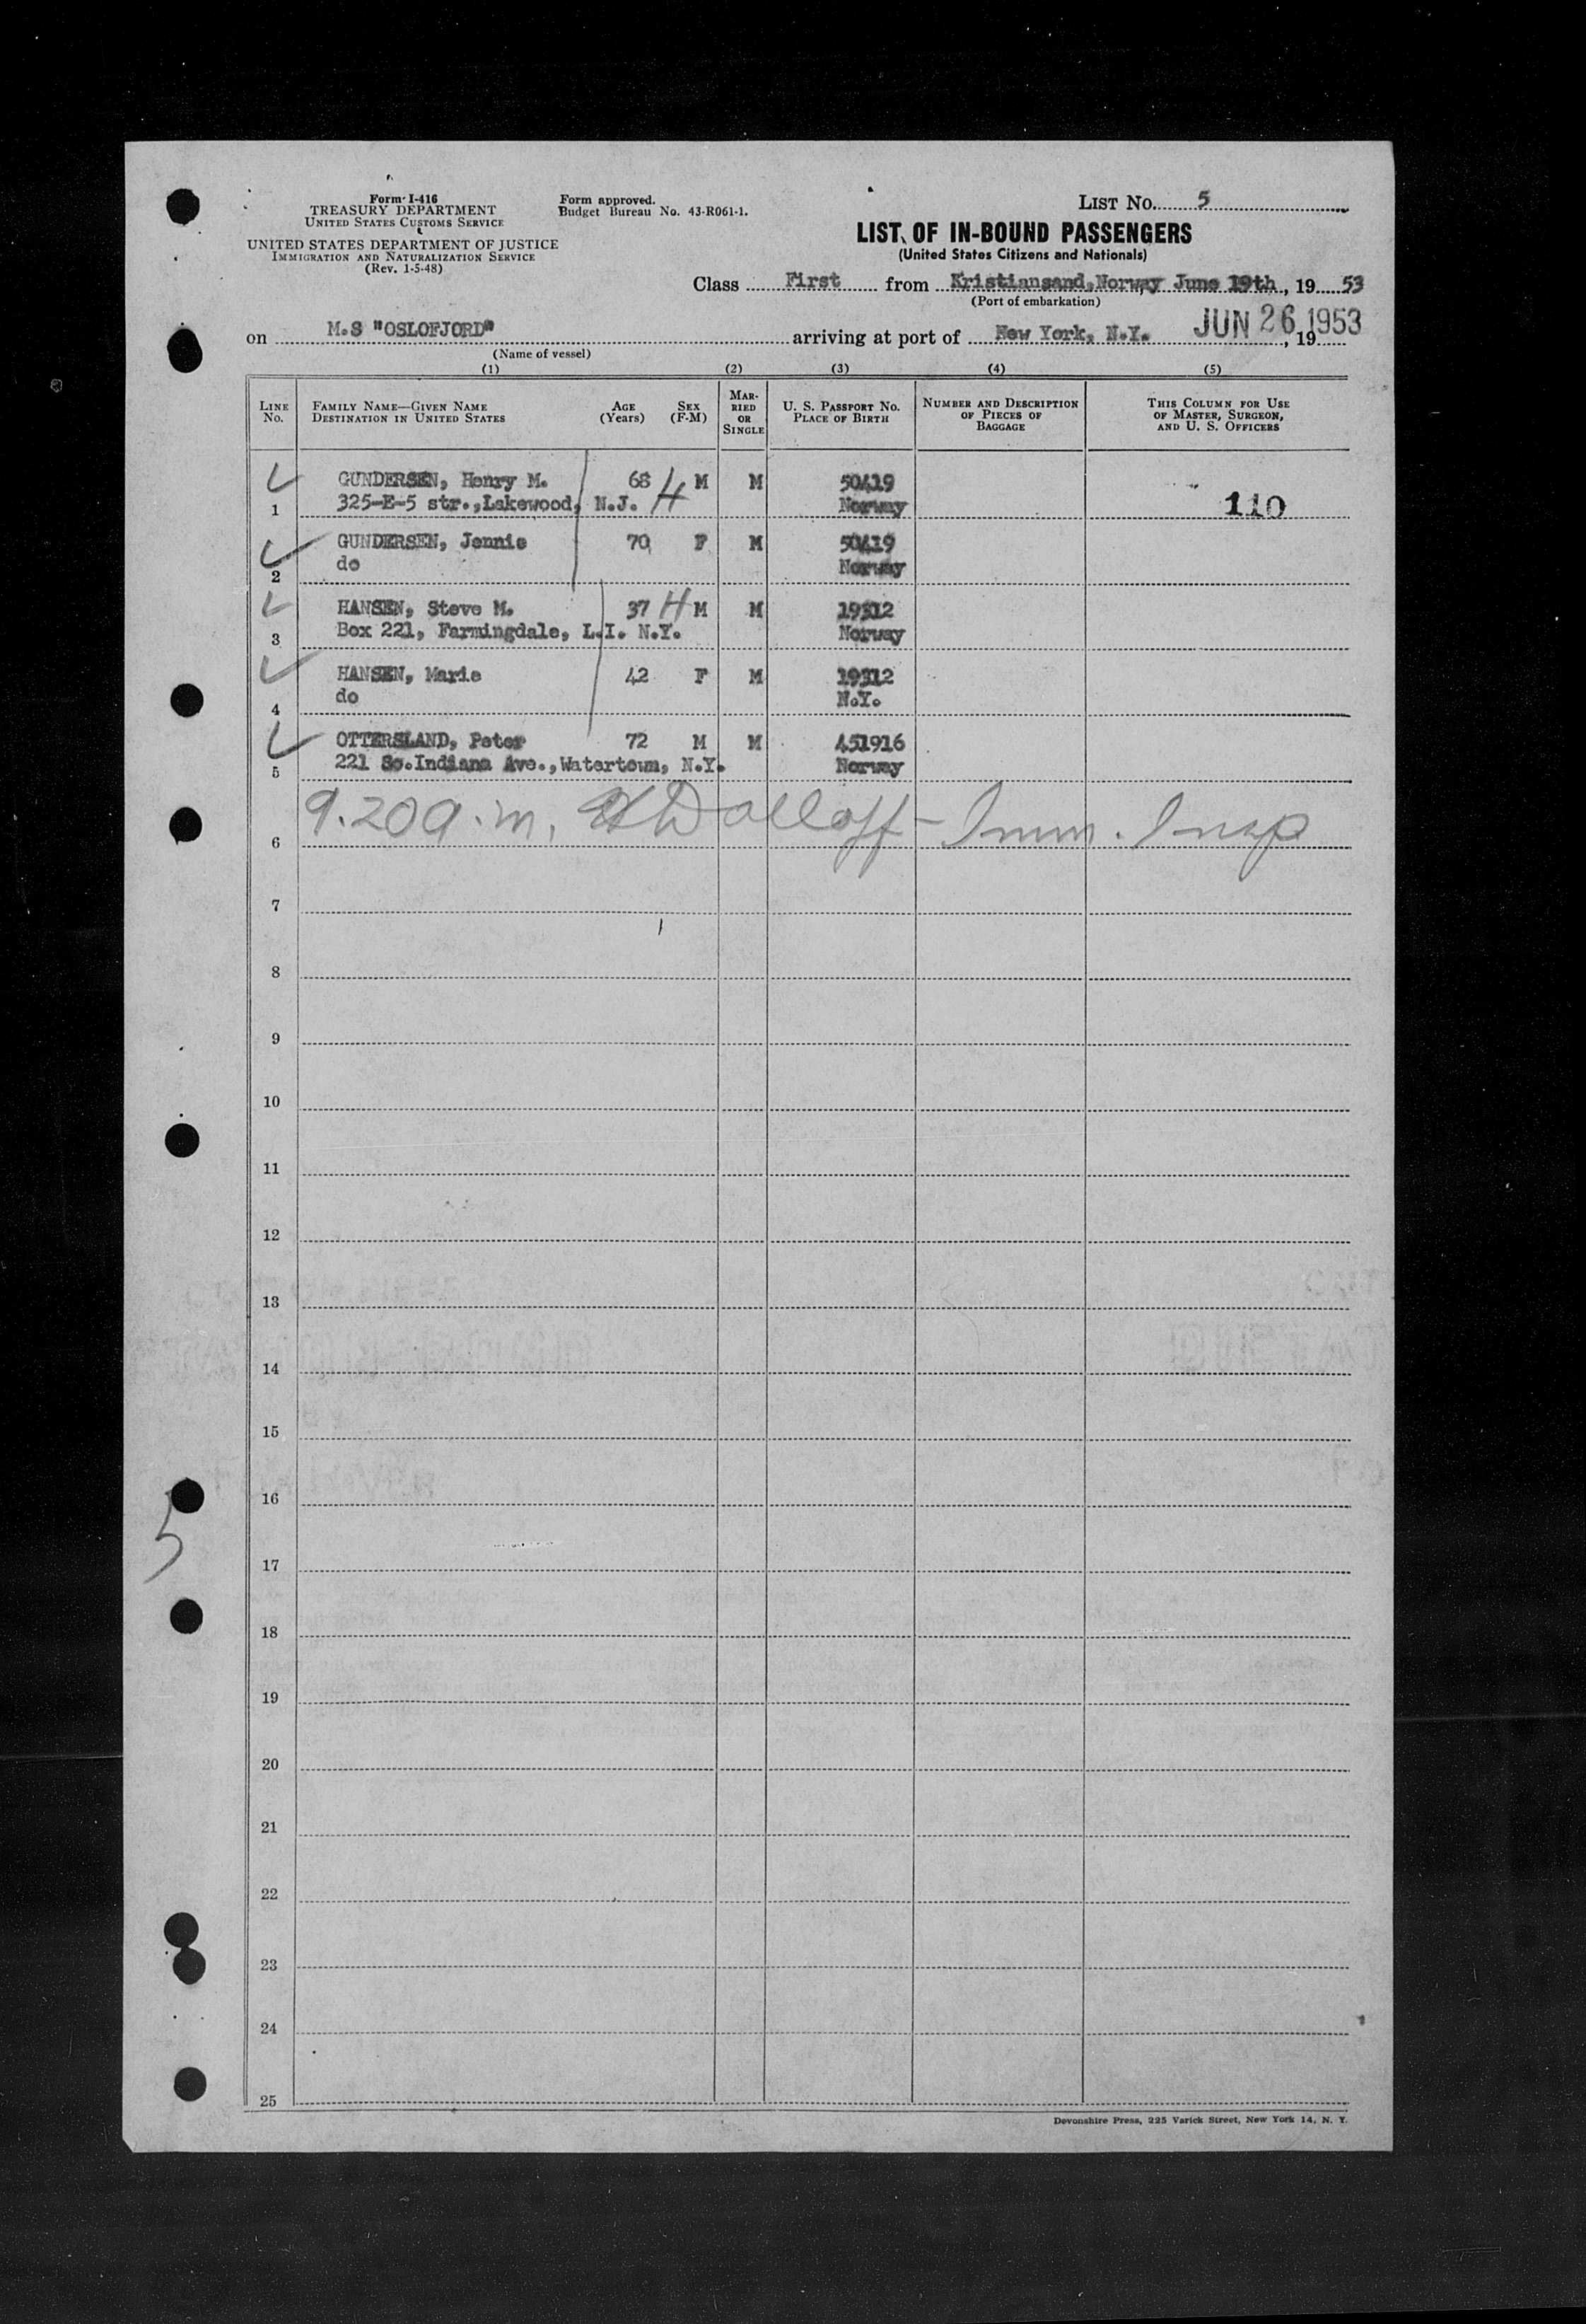 Form I-416
TREASURY DEPARTMENT
UNITED STATES CUSTOMS SERVICE
UNITED STATES DEPARTMENT OF JUSTICE
IMMIGRATION AND NATURALIZATION SERVICE
(Rev. 1-5-48)
Form approved.
Budget Bureau No. 43-R061-1.
LIST No. 5
LIST OF IN-BOUND PASSENGERS
(United States Citizens and Nationals)
Class First from Kristiansand, Norway June 19th, 19 53
(Port of embarkation)
on M.S "OSLOFJORD" arriving at port of New York, N.Y. JUN 26 1953, 19
(Name of vessel)
(1) (2) (3) (4) (5)
LINE No. FAMILY NAME—GIVEN NAME DESTINATION IN UNITED STATES AGE (Years) SEX (F-M) MARRIED OR SINGLE U. S. PASSPORT No. PLACE OF BIRTH NUMBER AND DESCRIPTION OF PIECES OF BAGGAGE THIS COLUMN FOR USE OF MASTER, SURGEON, AND U. S. OFFICERS
GUNDERSEN, Henry M. 68 M M 50419
1 325-E-5 str., Lakewood, N.J. H Norway 110
GUNDERSEN, Jennie 70 F M 50419
2 do Norway
HANSEN, Steve M. 37 H M M 19312
3 Box 221, Farmingdale, L.I. N.Y. Norway
HANSEN, Marie 42 F M 19312
4 do N.Y.
OTTERSLAND, Peter 72 M M 451916
5 221 So. Indiana Ave., Watertown, N.Y. Norway
6 9.20 a.m. Dolloff - Imm. Insp
7
8
9
10
11
12
13
14
15
16
5
17
18
19
20
21
22
23
24
25
Devonshire Press, 225 Varick Street, New York 14, N. Y.